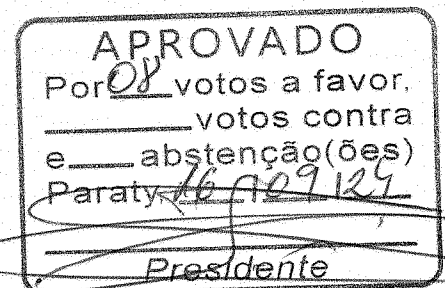 APROVADO
Por 08 votos a favor,
______ votos contra
e____ abstenção(ões)
Paraty, 16/09/24
Presidente